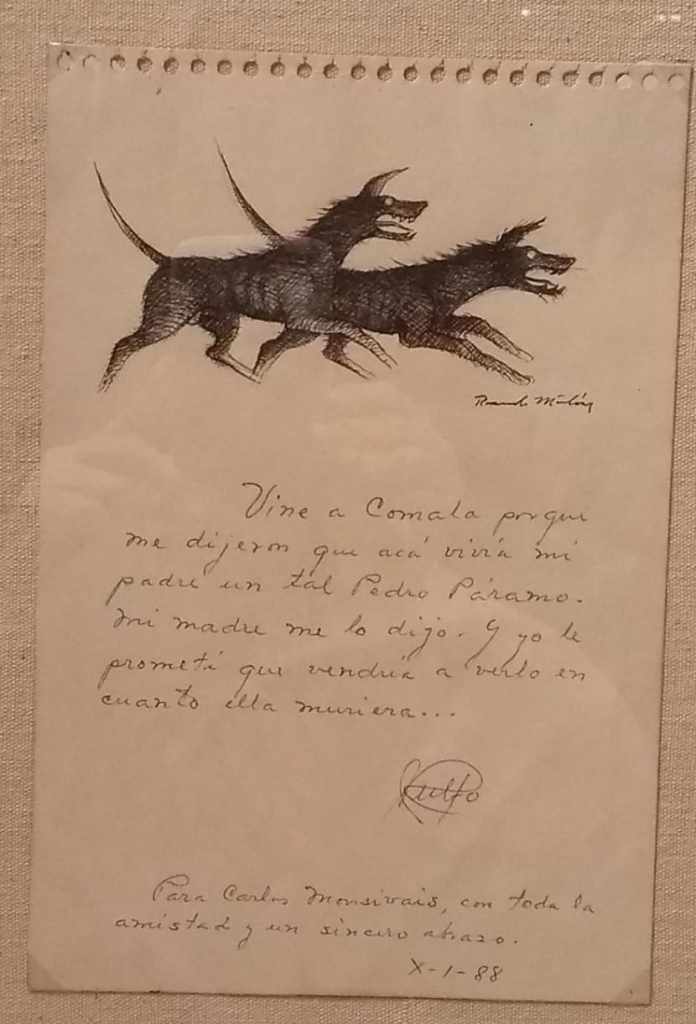 Vine a Comala porque
me dijeron que acá vivía mi
padre un tál Pedro Páramo.
Mi madre me lo dijo. Y yo le
prometí que vendría a verlo en
cuanto ella muriera...
Rulfo
Para Carlos Monsivais, con toda la
amistad y un sincero abrazo.
X-1-88